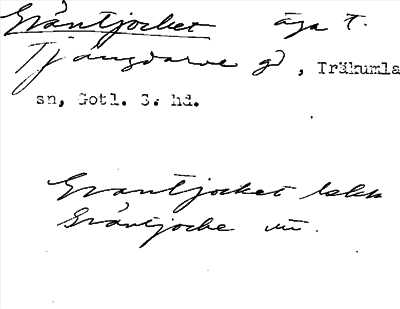 Gråntjocket äga t.
Tjängdarve gd, Träkumla
sn, Gotl. S. hd.
Grantjocket
Gråntjocke